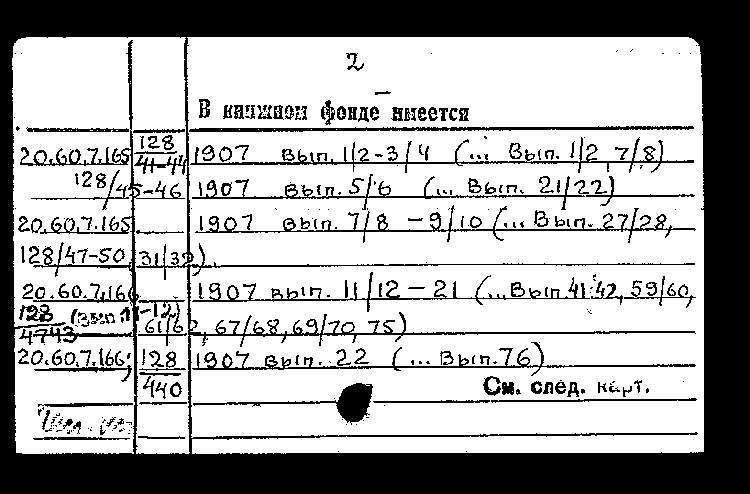 2
В книжном фонде имеется
20.60.7.165 128/41-44 1907 вып. 1/2-3/4 (... Вып. 1/2, 7/8)
128/45-46 1907 вып. 5/6 (... Вып. 21/22)
20.60.7.165 1907 вып. 7/8 - 9/10 (... Вып. 27/28,
128/47-50 31/32).
20.60.7.166 1907 вып. 11/12 - 21 (... Вып. 41/42, 59/60,
128/4743 (вып. 11-12) 61/62, 67/68, 69/70, 75)
20.60.7.166; 128/440 1907 вып. 22 (... Вып. 76)
См. след. карт.